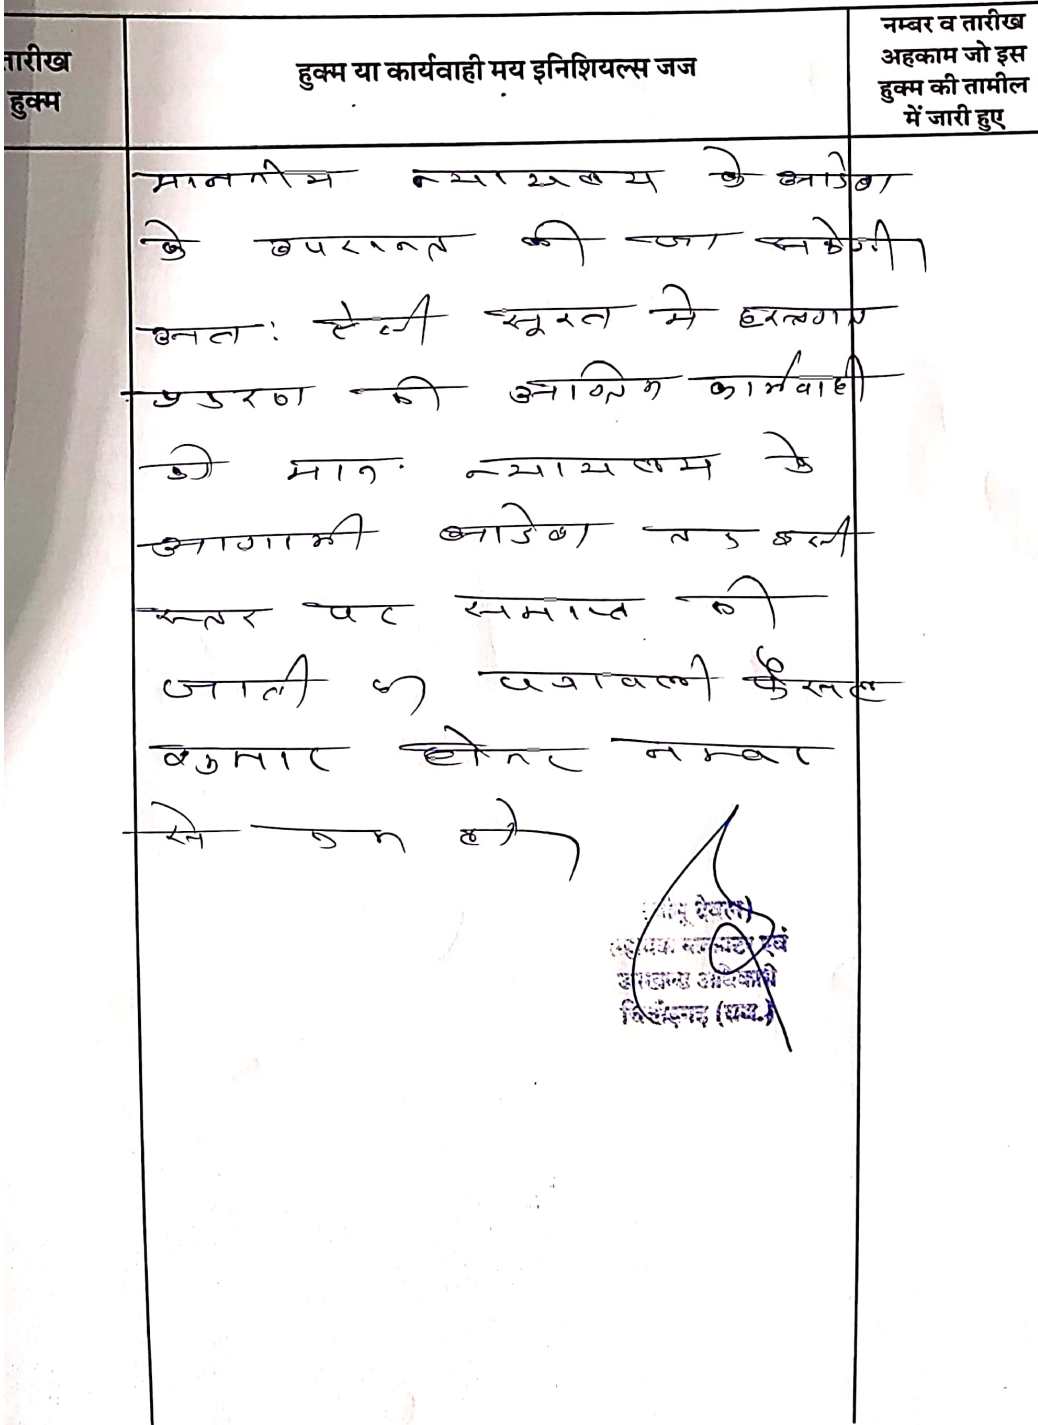 तारीख
हुक्म
हुक्म या कार्यवाही मय इनिशियल्स जज
नम्बर व तारीख
अहकाम जो इस
हुक्म की तामील
में जारी हुए
माननीय न्यायालय के आदेश
के उपरान्त की जा सकेगी।
अतः ऐसी सूरत मे हस्तगत
प्रकरण की अग्रिम कार्यवाही
को मान. न्यायालय के
आगामी आदेश तक इसी
स्तर पर समाप्त की
जाती है। पत्रावली फैसल
शुमार होकर नम्बर
से कम हो।
एवं
उपखण्ड अधिकारी
चित्तौड़गढ़ (राज.)